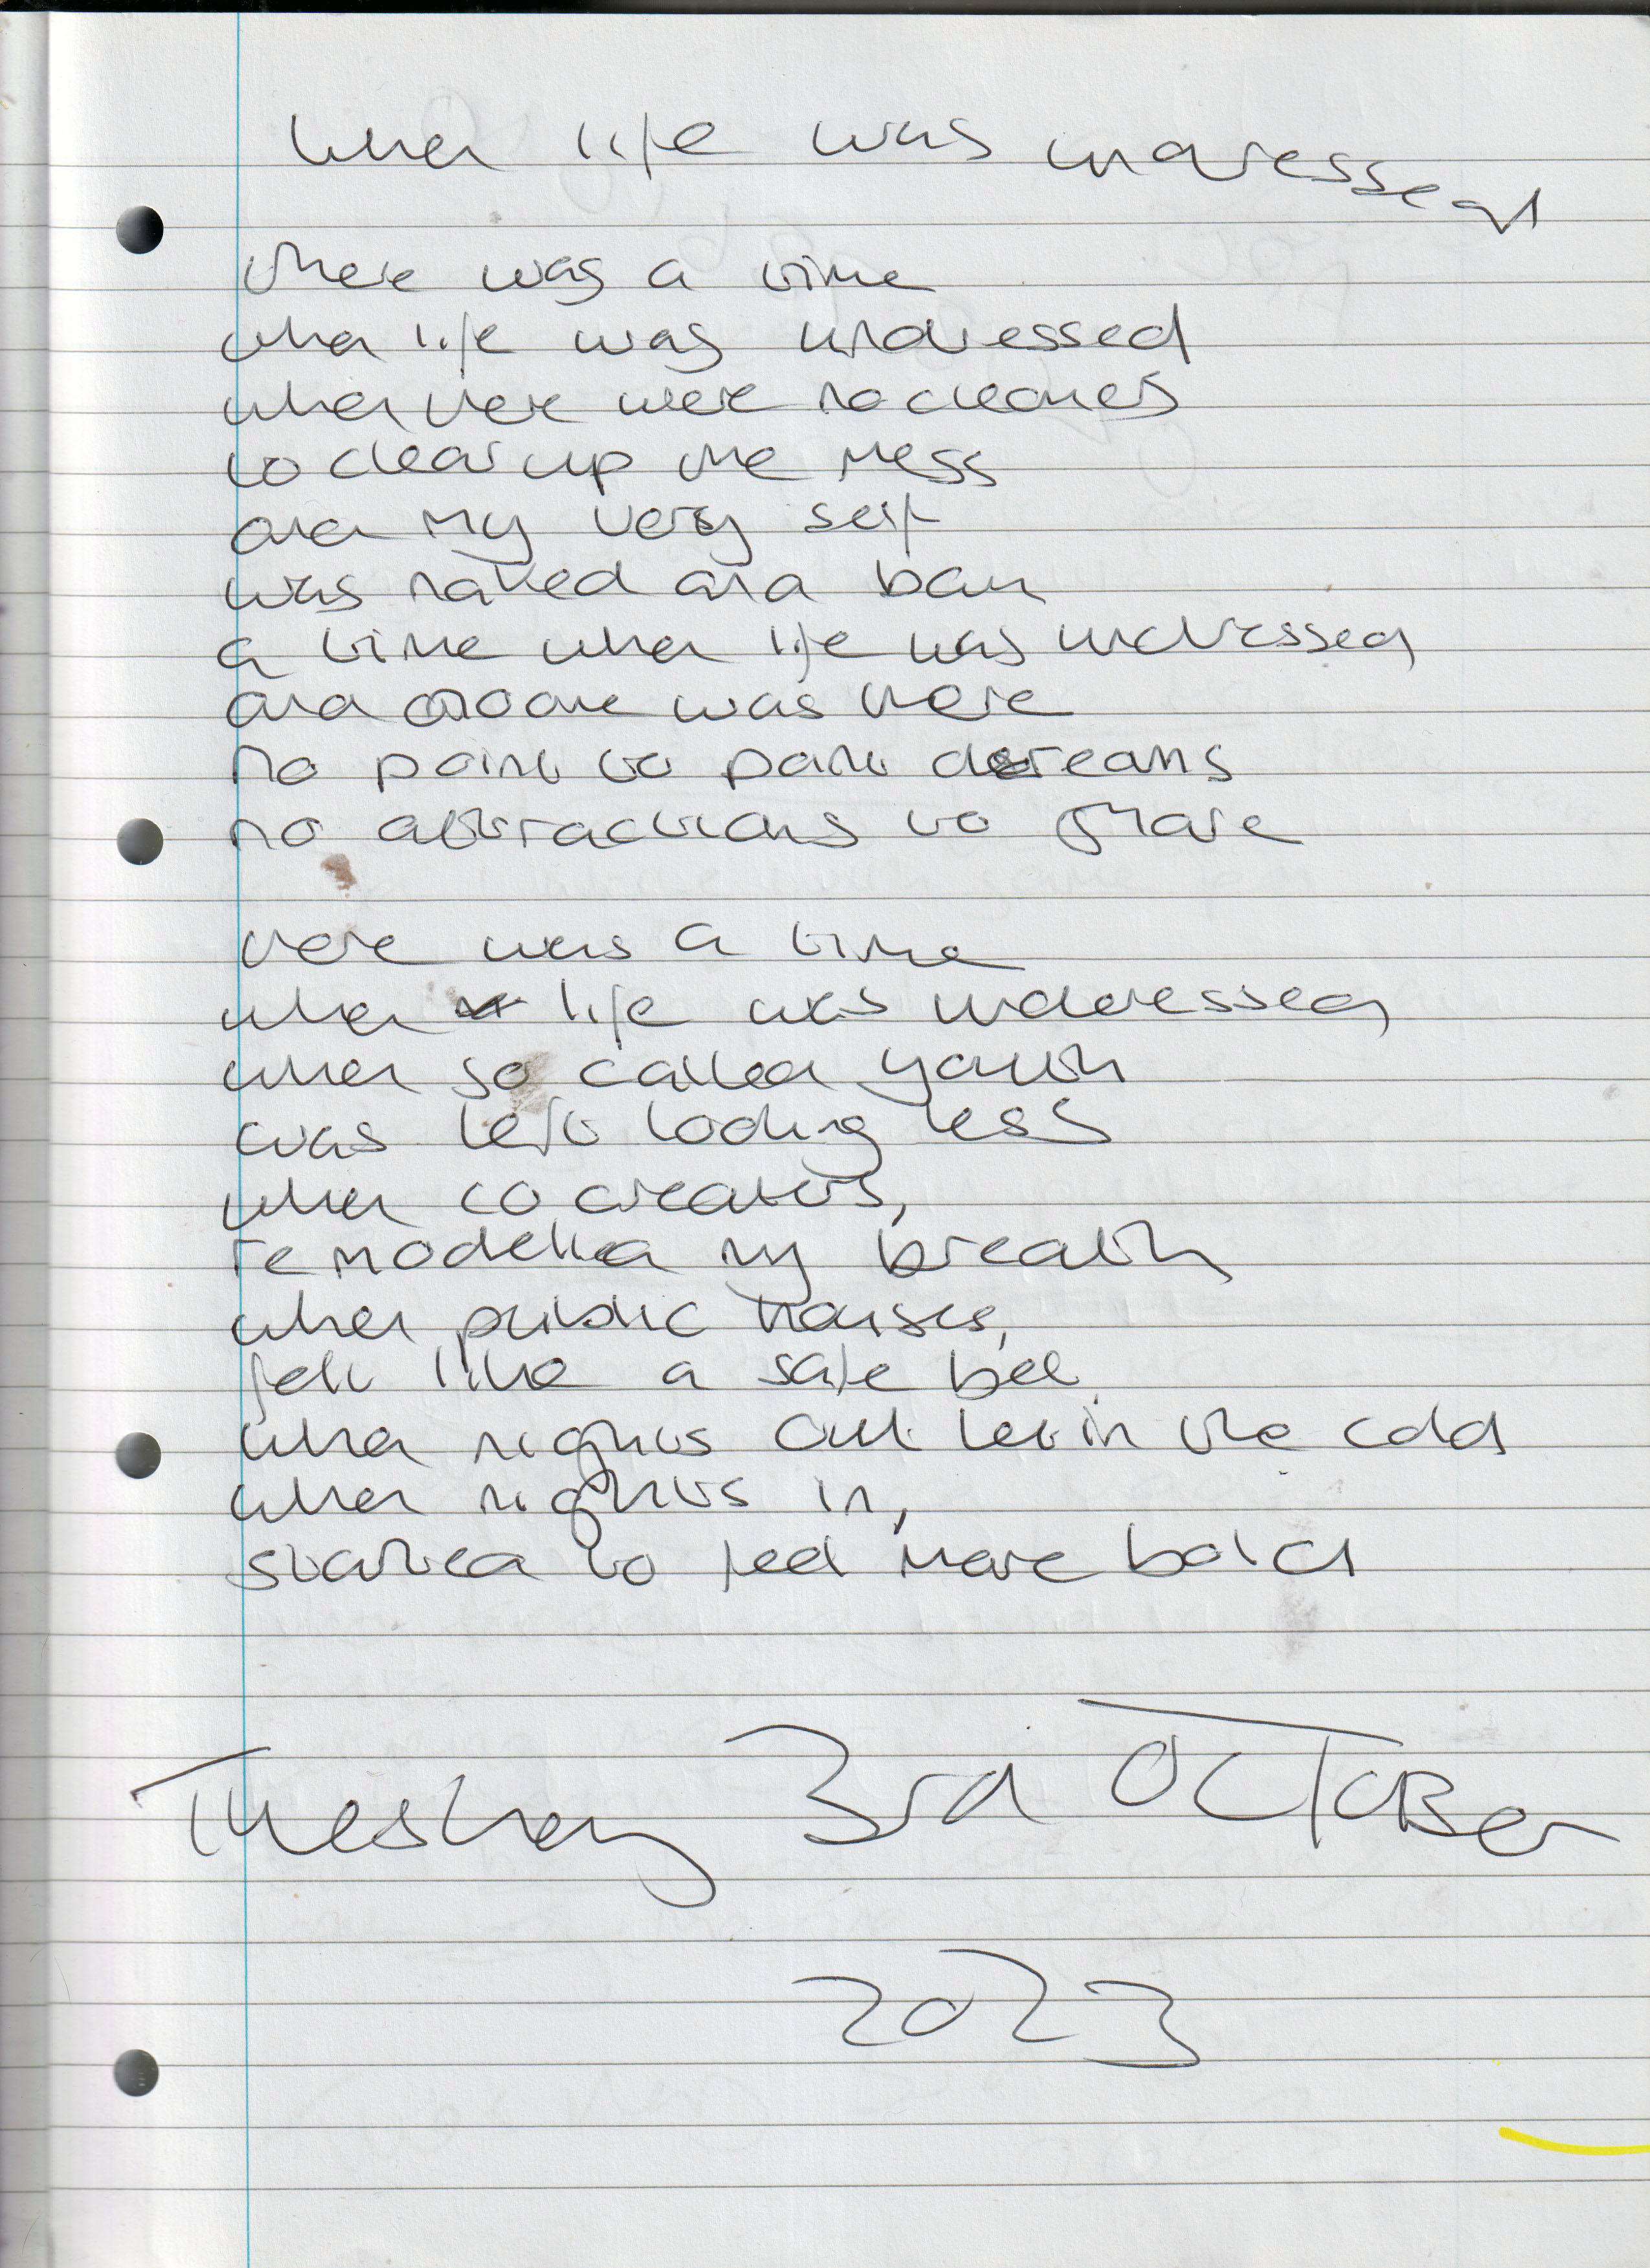 when life was undressed
there was a time
when life was undressed
when there were no cleaners
to clear up the mess
and my very self
was naked and bare
a time when life was undressed
and no one was there
no paint to paint dreams
no attractions to share
there was a time
when life was undressed
when so called youth
was left looking less
when co creators,
remodelled my breath
when public houses,
felt like a safe bet
when nights out left in the cold
when nights in,
started to feel more bold
Tuesday 3rd OCTOBer
2023